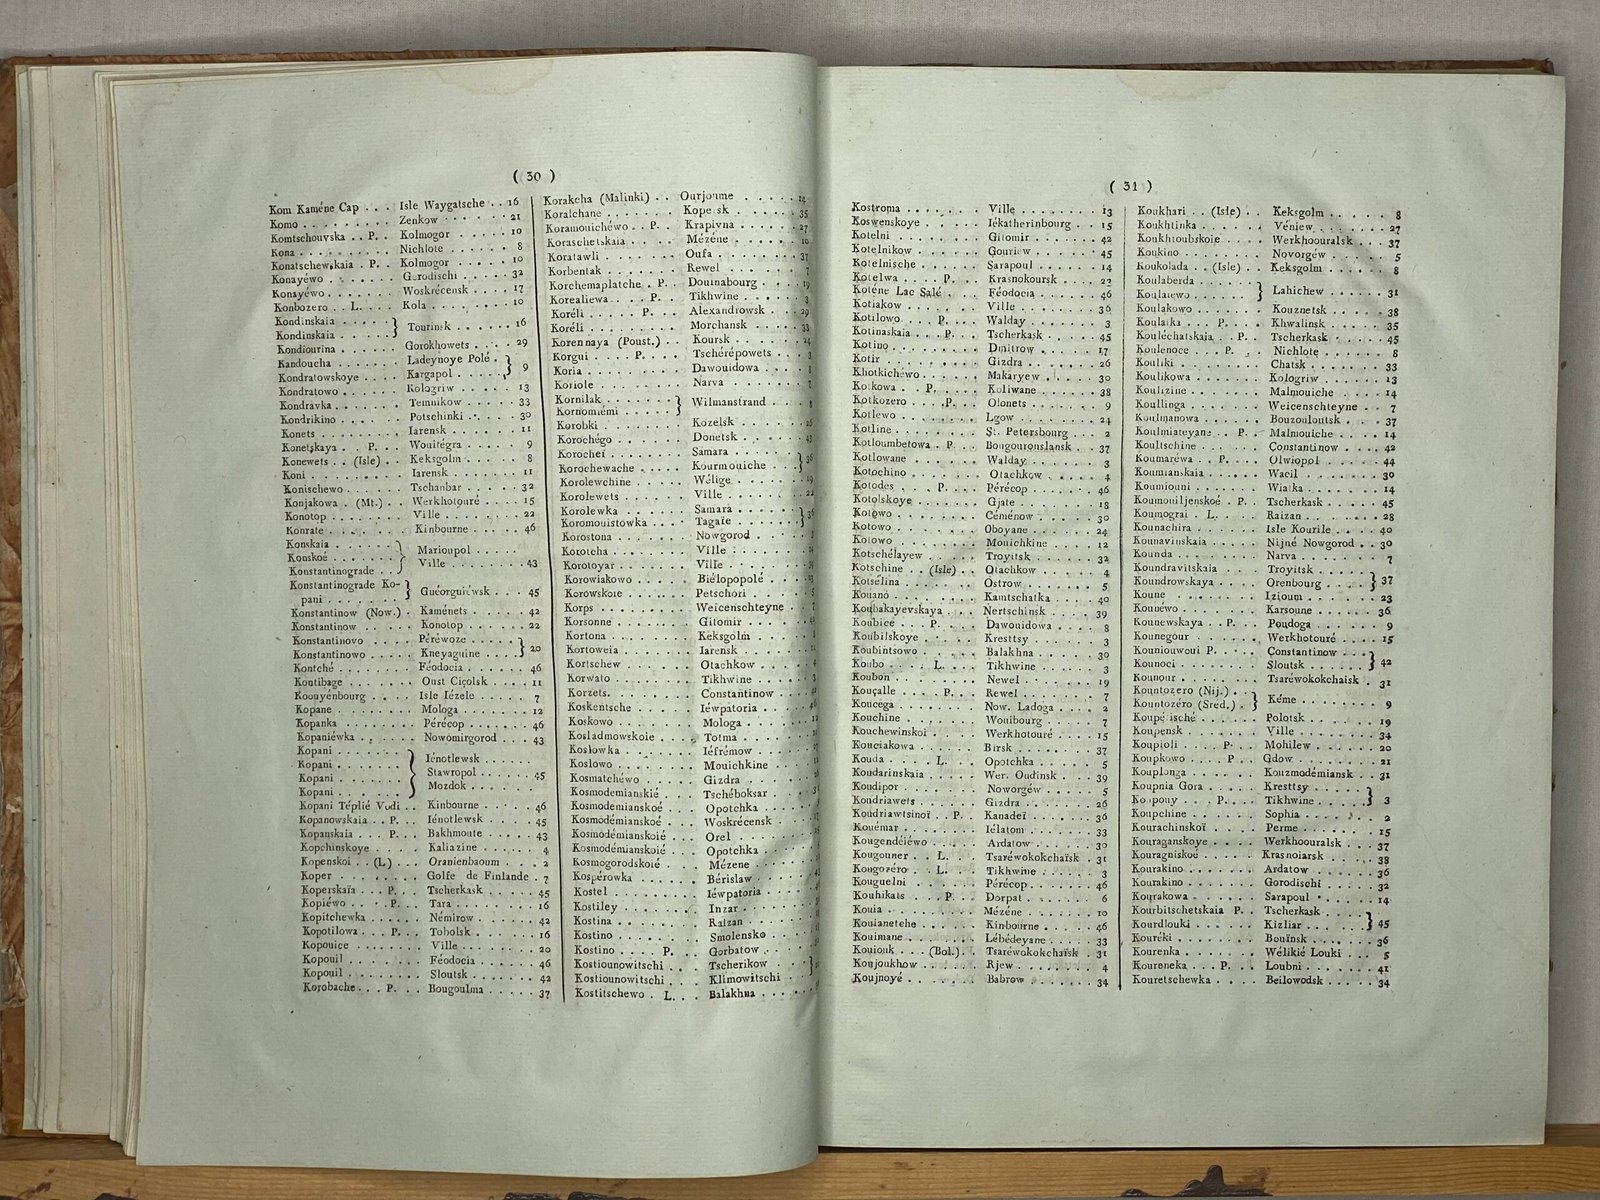 ( 30 )
Kom Kaméne Cap . . . Isle Waygatsche . . 16
Komo . . . . . . . . Zenkow . . . . . . 21
Komtschouvska . . P. . Kolmogor . . . . . 10
Kona . . . . . . . . Nichlote . . . . . . 8
Konatschewskaia . P. . Kolmogor . . . . . 10
Konayéwo . . . . . . . Gorodischi . . . . 32
Konayéwo . . . . . . . Woskrécensk . . . . 17
Konbozero . . L. . . . Kola . . . . . . . 10
Kondinskaia . . . . . } Tourinsk . . . . . . 16
Kondinskaia . . . . .
Kondiourina . . . . . . Gorokhowets . . . . 29
Kandoucha . . . . . . . Ladeynoye Polé . } 9
Kondratowskoye . . . . Kargapol . . . .
Kondratowo . . . . . . Kologriw . . . . . 13
Kondravka . . . . . . . Temnikow . . . . . 33
Kondrikino . . . . . . Potschinki . . . . 30
Konets . . . . . . . . Iarensk . . . . . . 11
Konetskaya . . P. . . . Wouitégra . . . . . 9
Konewets . . (Isle) . . Keksgolm . . . . . 8
Koni . . . . . . . . . Iarensk . . . . . . 11
Konischewo . . . . . . Tschanbar . . . . . 32
Konjakowa . (Mt.) . . . Werkhotouré . . . . 15
Konotop . . . . . . . . Ville . . . . . . . 22
Konrate . . . . . . . . Kinbourne . . . . . 46
Konskaia . . . . . . }
Konskoé . . . . . . . Marioupol . . . . .
Konstantinograde . . . Ville . . . . . . . 43
Konstantinograde Ko-
pani . . . . . . . . } Guéorguiéwsk . . . 45
Konstantinow (Now.) . Kaménets . . . . . 42
Konstantinow . . . . . Konotop . . . . . . 22
Konstantinovo . . . . Péréwoze . . . . } 20
Konstantinowo . . . . Kneyaguine . . . .
Kontché . . . . . . . Féodocia . . . . . . 46
Kontibage . . . . . . Oust Ciçolsk . . . . 11
Koouyénbourg . . . . . Isle Iézele . . . . 7
Kopane . . . . . . . . Mologa . . . . . . . 12
Kopanka . . . . . . . Pérécop . . . . . . 46
Kopaniéwka . . . . . . Nowomirgorod . . . 43
Kopani . . . . . . . }
Kopani . . . . . . . Iénotlewsk . . . . .
Kopani . . . . . . . Stawropol . . . . . 45
Kopani . . . . . . . Mozdok . . . . . .
Kopani Téplié Vodi . . Kinbourne . . . . . 46
Kopanowskaia . . P. . Iénotlewsk . . . . . 45
Kopanskaia . . . P. . Bakhmoute . . . . . 43
Kopchinskoye . . . . . Kaliazine . . . . . 4
Kopenskoi . . (L) . . . Oranienbaoum . . . . 2
Koper . . . . . . . . Golfe de Finlande . 7
Koperskaïa . . . P. . Tscherkask . . . . . 45
Kopiéwo . . . . P. . . Tara . . . . . . . . 16
Kopitchewka . . . . . Némirow . . . . . . 42
Kopotilowa . . . P. . Tobolsk . . . . . . 16
Kopouice . . . . . . . Ville . . . . . . . 20
Kopouil . . . . . . . Féodocia . . . . . . 46
Kopouil . . . . . . . Sloutsk . . . . . . 42
Korobache . . . P. . . Bougoulma . . . . . 37
Korakcha (Malinki) . . Ourjoume . . . . . 14
Koralchane . . . . . . Kopersk . . . . . . 35
Koramouichéwo . . P. . Krapivna . . . . . 27
Koraschetskaia . . . . Mézéne . . . . . . 10
Koratawli . . . . . . Oufa . . . . . . . 37
Korbentak . . . . . . Rewel . . . . . . . 7
Korchemaplatche . P. . Douinabourg . . . . 19
Korealiewa . . . P. . Tikhwine . . . . . 3
Koréli . . . . . P. . Alexandrowsk . . . 29
Koréli . . . . . . . . Morchansk . . . . . 33
Korennaya (Poust.) . . Koursk . . . . . . 24
Korgui . . . . . P. . Tschérépowets . . . 3
Koria . . . . . . . . Dawouidowa . . . . 8
Koriole . . . . . . . Narva . . . . . . . 7
Kornilak . . . . . . } Wilmanstrand . . . 8
Kornomiémi . . . . .
Korobki . . . . . . . Kozelsk . . . . . . 26
Korochégo . . . . . . Donetsk . . . . . . 43
Korocheï . . . . . . . Samara . . . . . } 36
Korochewache . . . . . Kourmouiche . . .
Korolewchine . . . . . Wélige . . . . . . 19
Korolewets . . . . . . Ville . . . . . . . 22
Korolewka . . . . . . Samara . . . . . } 36
Koromouistowka . . . . Tagaïe . . . . . .
Korostona . . . . . . Nowgorod . . . . .
Korotcha . . . . . . . Ville . . . . . . .
Korotoyar . . . . . . Ville . . . . . . .
Korowiakowo . . . . . Biélopopolé . . . .
Korowskoie . . . . . . Petschori . . . . . 5
Korps . . . . . . . . Weicenschteyne . . 7
Korsonne . . . . . . . Gitomir . . . . . . 42
Kortona . . . . . . . Keksgolm . . . . . 8
Kortoweia . . . . . . Iarensk . . . . . . 11
Kortschew . . . . . . Otachkow . . . . . 4
Korwato . . . . . . . Tikhwine . . . . . 3
Korzets . . . . . . . Constantinow . . . 42
Koskentsche . . . . . Iéwpatoria . . . . 46
Koskowo . . . . . . . Mologa . . . . . . 12
Kosladmowskoie . . . . Totma . . . . . .
Koslowka . . . . . . . Iéfrémow . . . . . 27
Koslowo . . . . . . . Mouichkine . . . . 12
Kosmatchéwo . . . . . Gizdra . . . . . . 26
Kosmodemianskié . . . Tschéboksar . . . .
Kosmodemianskoé . . . Opotchka . . . . .
Kosmodémianskoé . . . Woskrécensk . . . . 17
Kosmodémianskoié . . . Orel . . . . . . .
Kosmodémianskoié . . . Opotchka . . . . .
Kosmogorodskoié . . . Mézene . . . . . .
Kospérowka . . . . . . Bérislaw . . . . .
Kostel . . . . . . . . Iéwpatoria . . . .
Kostiley . . . . . . . Inzar . . . . . . .
Kostina . . . . . . . Raizan . . . . . .
Kostino . . . . . . . Smolensko . . . . .
Kostino . . . . P. . . Gorbatow . . . . .
Kostiounowitschi . . . Tscherikow . . . }
Kostiounowitschi . . . Klimowitschi . . .
Kostitschewo . L. . . Balakhna . . . . .
( 31 )
Kostroma . . . . . . . Ville . . . . . . . 13
Koswenskoye . . . . . Iékatherinbourg . . 15
Kotelni . . . . . . . Gitomir . . . . . . 42
Kotelnikow . . . . . . Gouriew . . . . . . 45
Kotelnische . . . . . Sarapoul . . . . . 14
Kotelwa . . . . P. . . Krasnokoursk . . . 22
Koténe Lac Salé . . . Féodocia . . . . . 46
Kotiakow . . . . . . . Ville . . . . . . . 36
Kotilowo . . . . P. . Walday . . . . . . 3
Kotinaskaia . . . P. . Tscherkask . . . . 45
Kotino . . . . . . . . Dmitrow . . . . . . 17
Kotir . . . . . . . . Gizdra . . . . . . 26
Khotkichéwo . . . . . Makáryew . . . . . 30
Kotkowa . . . P. . . . Koliwane . . . . . 38
Kotkozero . . . .P. . Olonets . . . . . . 9
Kotlewo . . . . . . . Lgow . . . . . . . 24
Kotline . . . . . . . St. Petersbourg . . 2
Kotloumbetowa . . P. . Bougouronslansk . . 37
Kotlowane . . . . . . Walday . . . . . . 3
Kotochino . . . . . . Otachkow . . . . . 4
Kotodes . . . . P. . . Pérécop . . . . . . 46
Kotolskoye . . . . . . Gjate . . . . . . . 18
Kotowo . . . . . . . . Céménow . . . . . . 30
Kotowo . . . . . . . . Oboyane . . . . . . 24
Kotowo . . . . . . . . Mouichkine . . . . 12
Kotschélayew . . . . . Troyitsk . . . . . 32
Kotschine . . (Isle) . . Otachkow . . . . . 4
Kotsélina . . . . . . Ostrow . . . . . . 5
Kouano . . . . . . . . Kamtschatka . . . . 40
Koubakayevskaya . . . Nertschinsk . . . . 39
Koubice . . . . P. . . Dawouidowa . . . . 8
Koubilskoye . . . . . Kresttsy . . . . . 3
Koubintsowo . . . . . Balakhna . . . . . 30
Koubo . . . . . L. . . Tikhwine . . . . . 3
Koubon . . . . . . . . Newel . . . . . . . 19
Kouçalle . . . . P. . Rewel . . . . . . . 7
Koucega . . . . . . . Now. Ladoga . . . . 2
Kouchine . . . . . . . Wouibourg . . . . . 7
Kouchewinskoi . . . . Werkhotouré . . . . 15
Kouciakowa . . . . . . Birsk . . . . . . . 37
Kouda . . . . . L. . . Opotchka . . . . . 5
Koudarinskaia . . . . Wer. Oudinsk . . . 39
Koudipor . . . . . . . Noworgéw . . . . . 5
Kondriawets . . . . . Gizdra . . . . . . 26
Koudriawtsinoï . . P. . Kanadeï . . . . . . 36
Kouémar . . . . . . . Iélatom . . . . . . 33
Kougendéiéwo . . . . . Ardatow . . . . . . 30
Kougouner . . . L. . . Tsaréwokokchaïsk . 31
Kougozéro . . . L. . . Tikhwine . . . . . 3
Kouguelni . . . . . . Pérécop . . . . . . 46
Kouhikats . . . . P. . Dorpat . . . . . . 6
Kouia . . . . . . . . Mézéne . . . . . . 10
Kouianetche . . . . . Kinbourne . . . . . 46
Kouimane . . . . . . . Lébédeyane . . . . 33
Kouiouk . . . (Bol.) . . Tsaréwokokchaïsk . 31
Koujoukhow . . . . . . Rjew . . . . . . . 4
Koujnoyé . . . . . . . Babrow . . . . . . 34
Koukhari . . (Isle) . . Keksgolm . . . . . 8
Koukhtinka . . . . . . Véniew . . . . . . 27
Koukhtoubskoie . . . . Werkhoouralsk . . . 37
Koukino . . . . . . . Novorgéw . . . . . 5
Koukolada . . (Isle) . Keksgolm . . . . . 8
Koulaberda . . . . . } Lahichew . . . . . 31
Koulaiewo . . . . . .
Koulakowo . . . . . . Kouznetsk . . . . . 38
Koulatka . . . P. . . Khwalinsk . . . . . 35
Kouléchatskaja . . P. . Tscherkask . . . . 45
Koulenoce . . . P. . . Nichlote . . . . . 8
Kouliki . . . . . . . Chatsk . . . . . . 33
Koulikowa . . . . . . Kologriw . . . . . 13
Koulizine . . . . . . Malmouiche . . . . 14
Koullinga . . . . . . Weicenschteyne . . 7
Koulmanowa . . . . . . Bouzouloutsk . . . 37
Koulmiateyane . . P. . Malmouiche . . . . 14
Koultschine . . . . . Constantinow . . . 42
Koumaréwa . . . P. . . Olwiopol . . . . . 44
Koumianskaia . . . . . Wacil . . . . . . . 30
Koumiouni . . . . . . Wiatka . . . . . . 14
Koumouiljenskoé . P. . Tscherkask . . . . 45
Koumograi . . L. . . . Raizan . . . . . . 28
Kounachira . . . . . . Isle Kourile . . . 40
Kounavinskaia . . . . Nijné Nowgorod . . 30
Kounda . . . . . . . . Narva . . . . . . . 7
Koundravitskaia . . . Troyitsk . . . . } 37
Koundrowskaya . . . . Orenbourg . . . .
Koune . . . . . . . . Izioum . . . . . . 23
Kounéwo . . . . . . . Karsoune . . . . . 36
Kounewskaya . . P. . . Poudoga . . . . . . 9
Kounegour . . . . . . Werkhotouré . . . . 15
Kouniouwoui P. . . . . Constantinow . . } 42
Kounoci . . . . . . . Sloutsk . . . . .
Kounour . . . . . . . Tsaréwokokchaisk . 31
Kountozero (Nij.) . . } Kéme . . . . . . . 9
Kountozéro (Sred.) . .
Koupétisché . . . . . Polotsk . . . . . . 19
Koupensk . . . . . . . Ville . . . . . . . 34
Koupioli . . . . P. . Mohilew . . . . . . 20
Koupkowo . . . . P . . Gdow . . . . . . . 21
Kouplonga . . . . . . Kouzmodémiansk . . 31
Koupnia Gora . . . . . Kresttsy . . . . } 3
Koupouy . . . . P. . . Tikhwine . . . . .
Koupchine . . . . . . Sophia . . . . . . 2
Kourachinskoï . . . . Perme . . . . . . . 15
Kouraganskoye . . . . Werkhoouralsk . . . 37
Kouragniskoé . . . . . Krasnoiarsk . . . . 38
Kourakino . . . . . . Ardatow . . . . . . 36
Kourakino . . . . . . Gorodischi . . . . 32
Kourakowa . . . . . . Sarapoul . . . . . 14
Kourbitschetskaia P. . Tscherkask . . . } 45
Kourdlouki . . . . . . Kizliar . . . . .
Kouréki . . . . . . . Bouïnsk . . . . . . 36
Kourenka . . . . . . . Wélikié Louki . . . 5
Koureneka . . . P. . . Loubni . . . . . . 41
Kouretschewka . . . . Beilowodsk . . . . 34